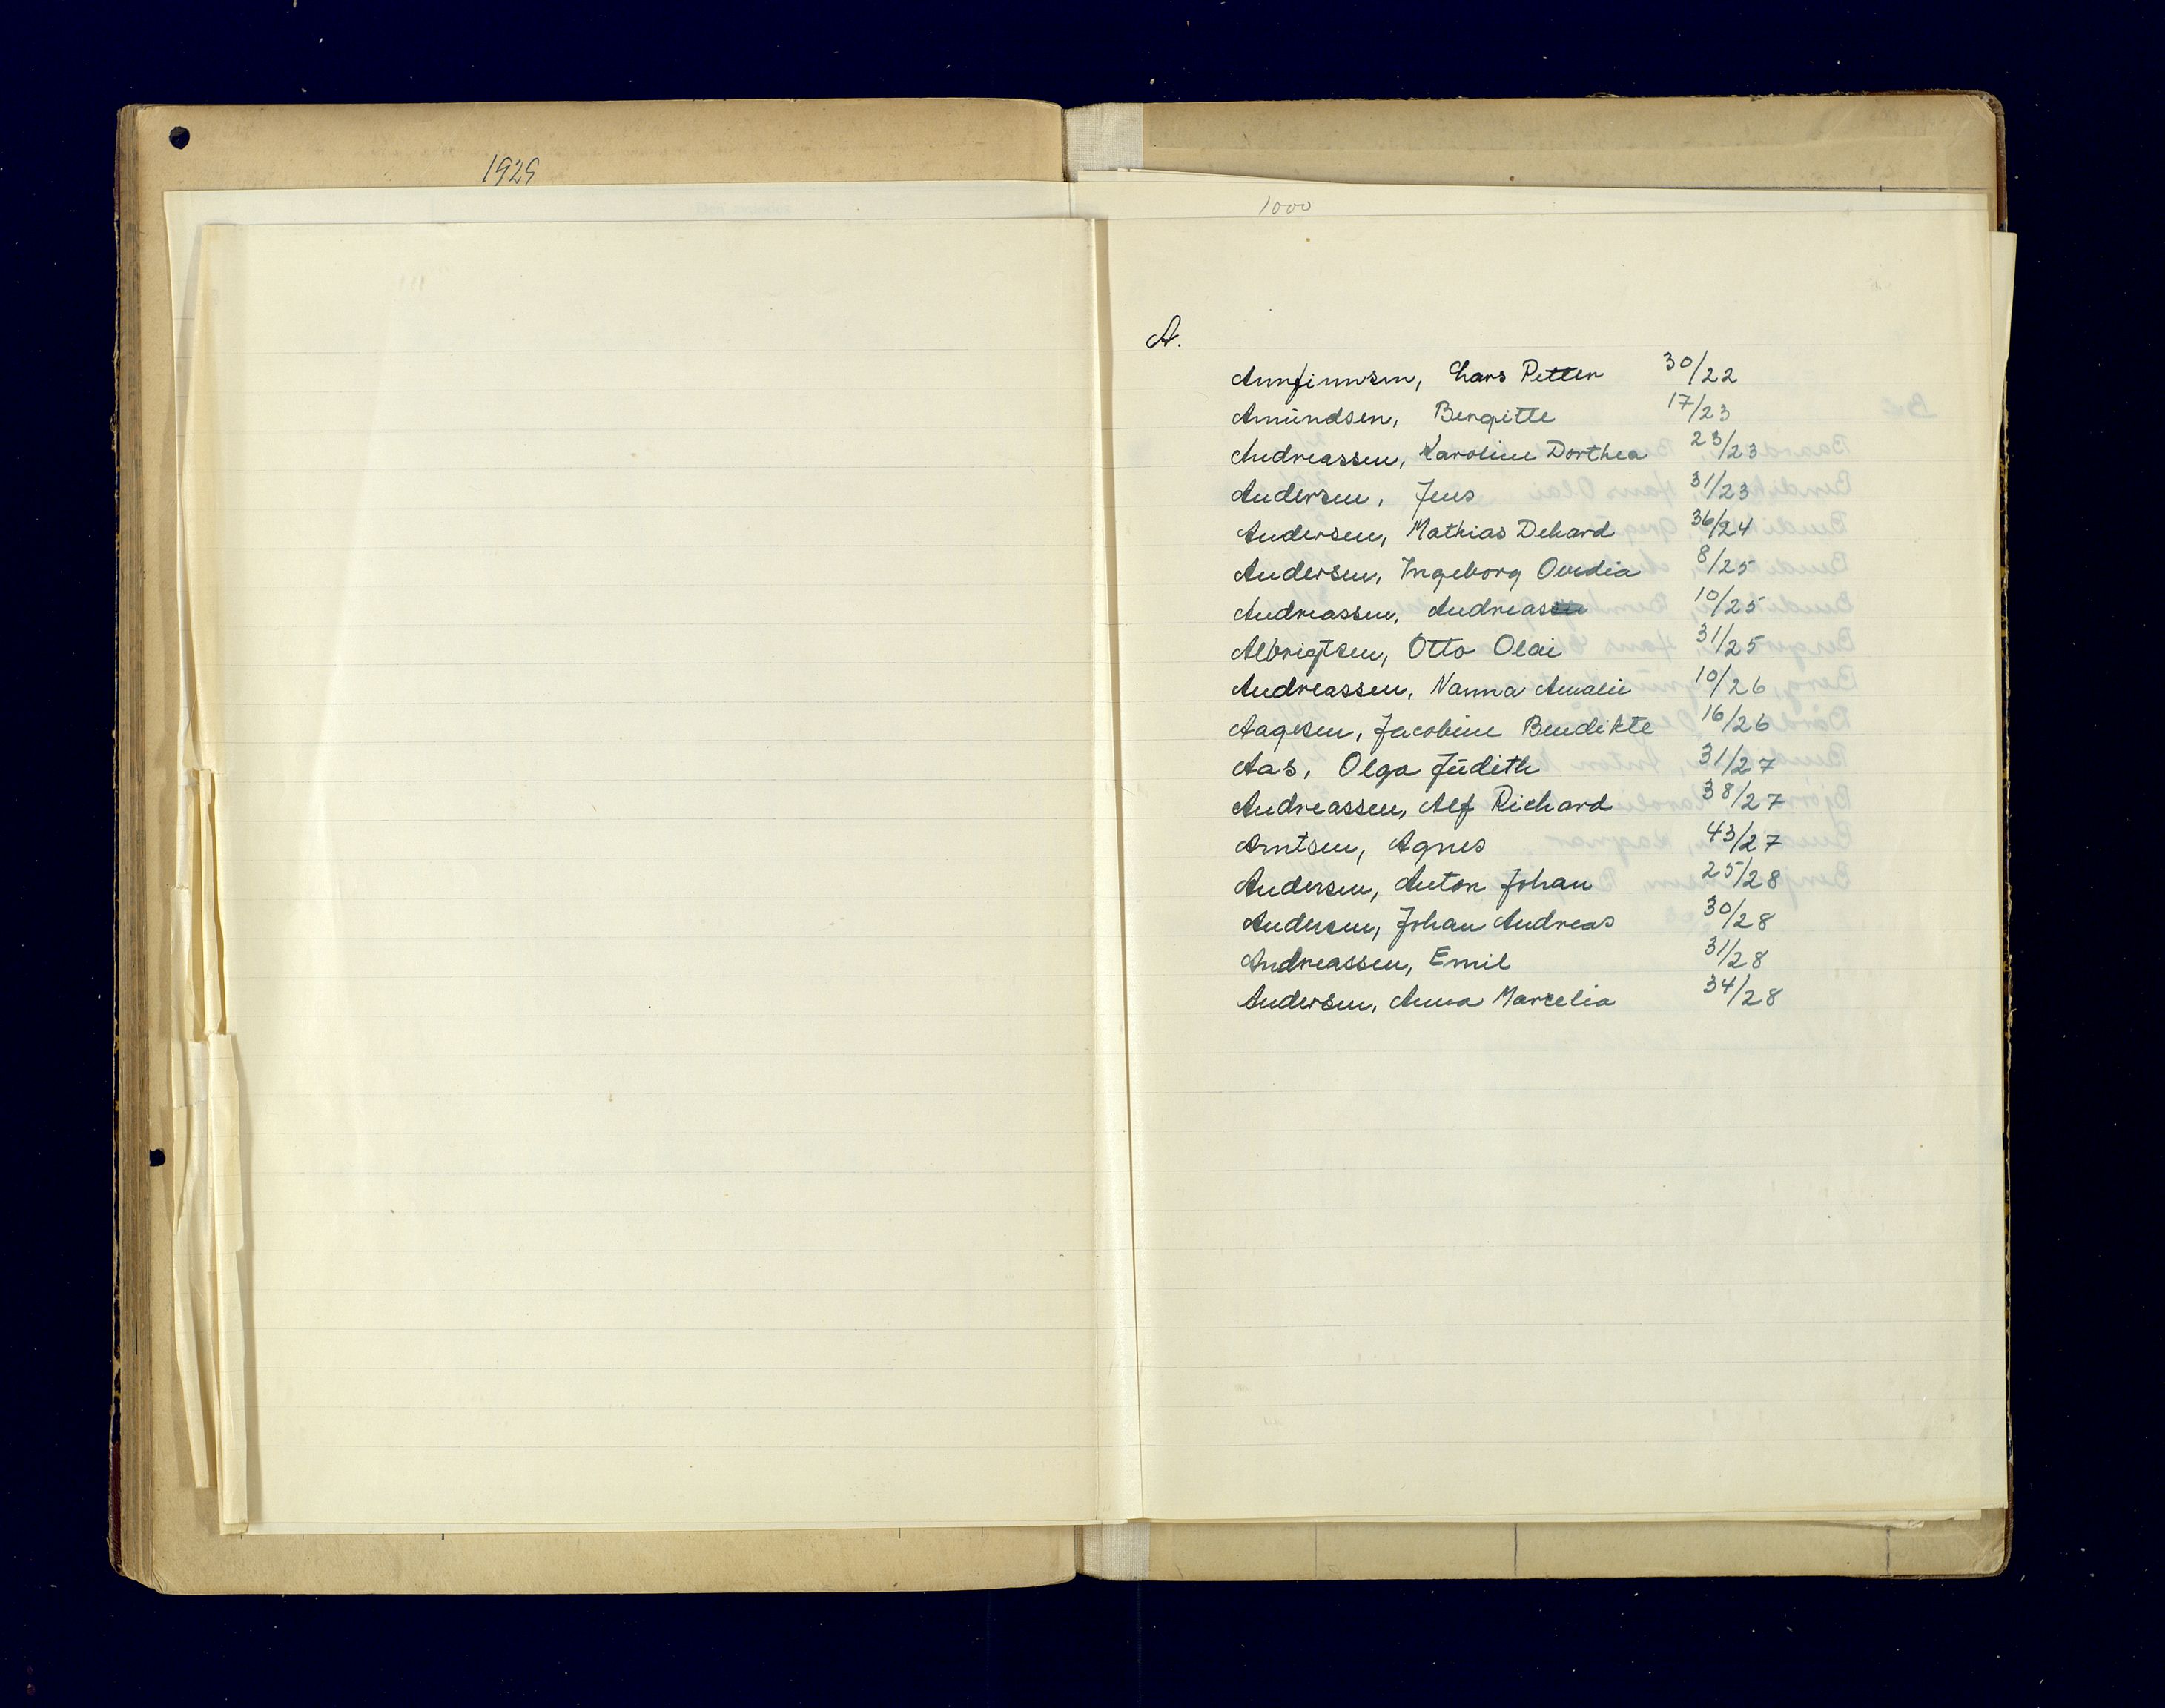 1929
1000
A.
Arnfinnsen, Lars Petter 30/22
Amundsen, Bergitte 17/23
Andreassen, Karoline Dorthea 23/23
Andersen, Jens 31/23
Andersen, Mathias Dehard 36/24
Andersen, Ingeborg Ovedia 8/25
Andreassen, Andreas 10/25
Albrigtsen, Otto Olai 31/25
Andreassen, Nanna Amalie 10/26
Aagesen, Jacobine Bendikte 16/26
Aas, Olga Judith 31/27
Andreassen, Alf Richard 38/27
Arntsen, Agnes 43/27
Andersen, Anton Johan 25/28
Andersen, Johan Andreas 30/28
Andreassen, Emil 31/28
Andersen, Anna Marselia 34/28